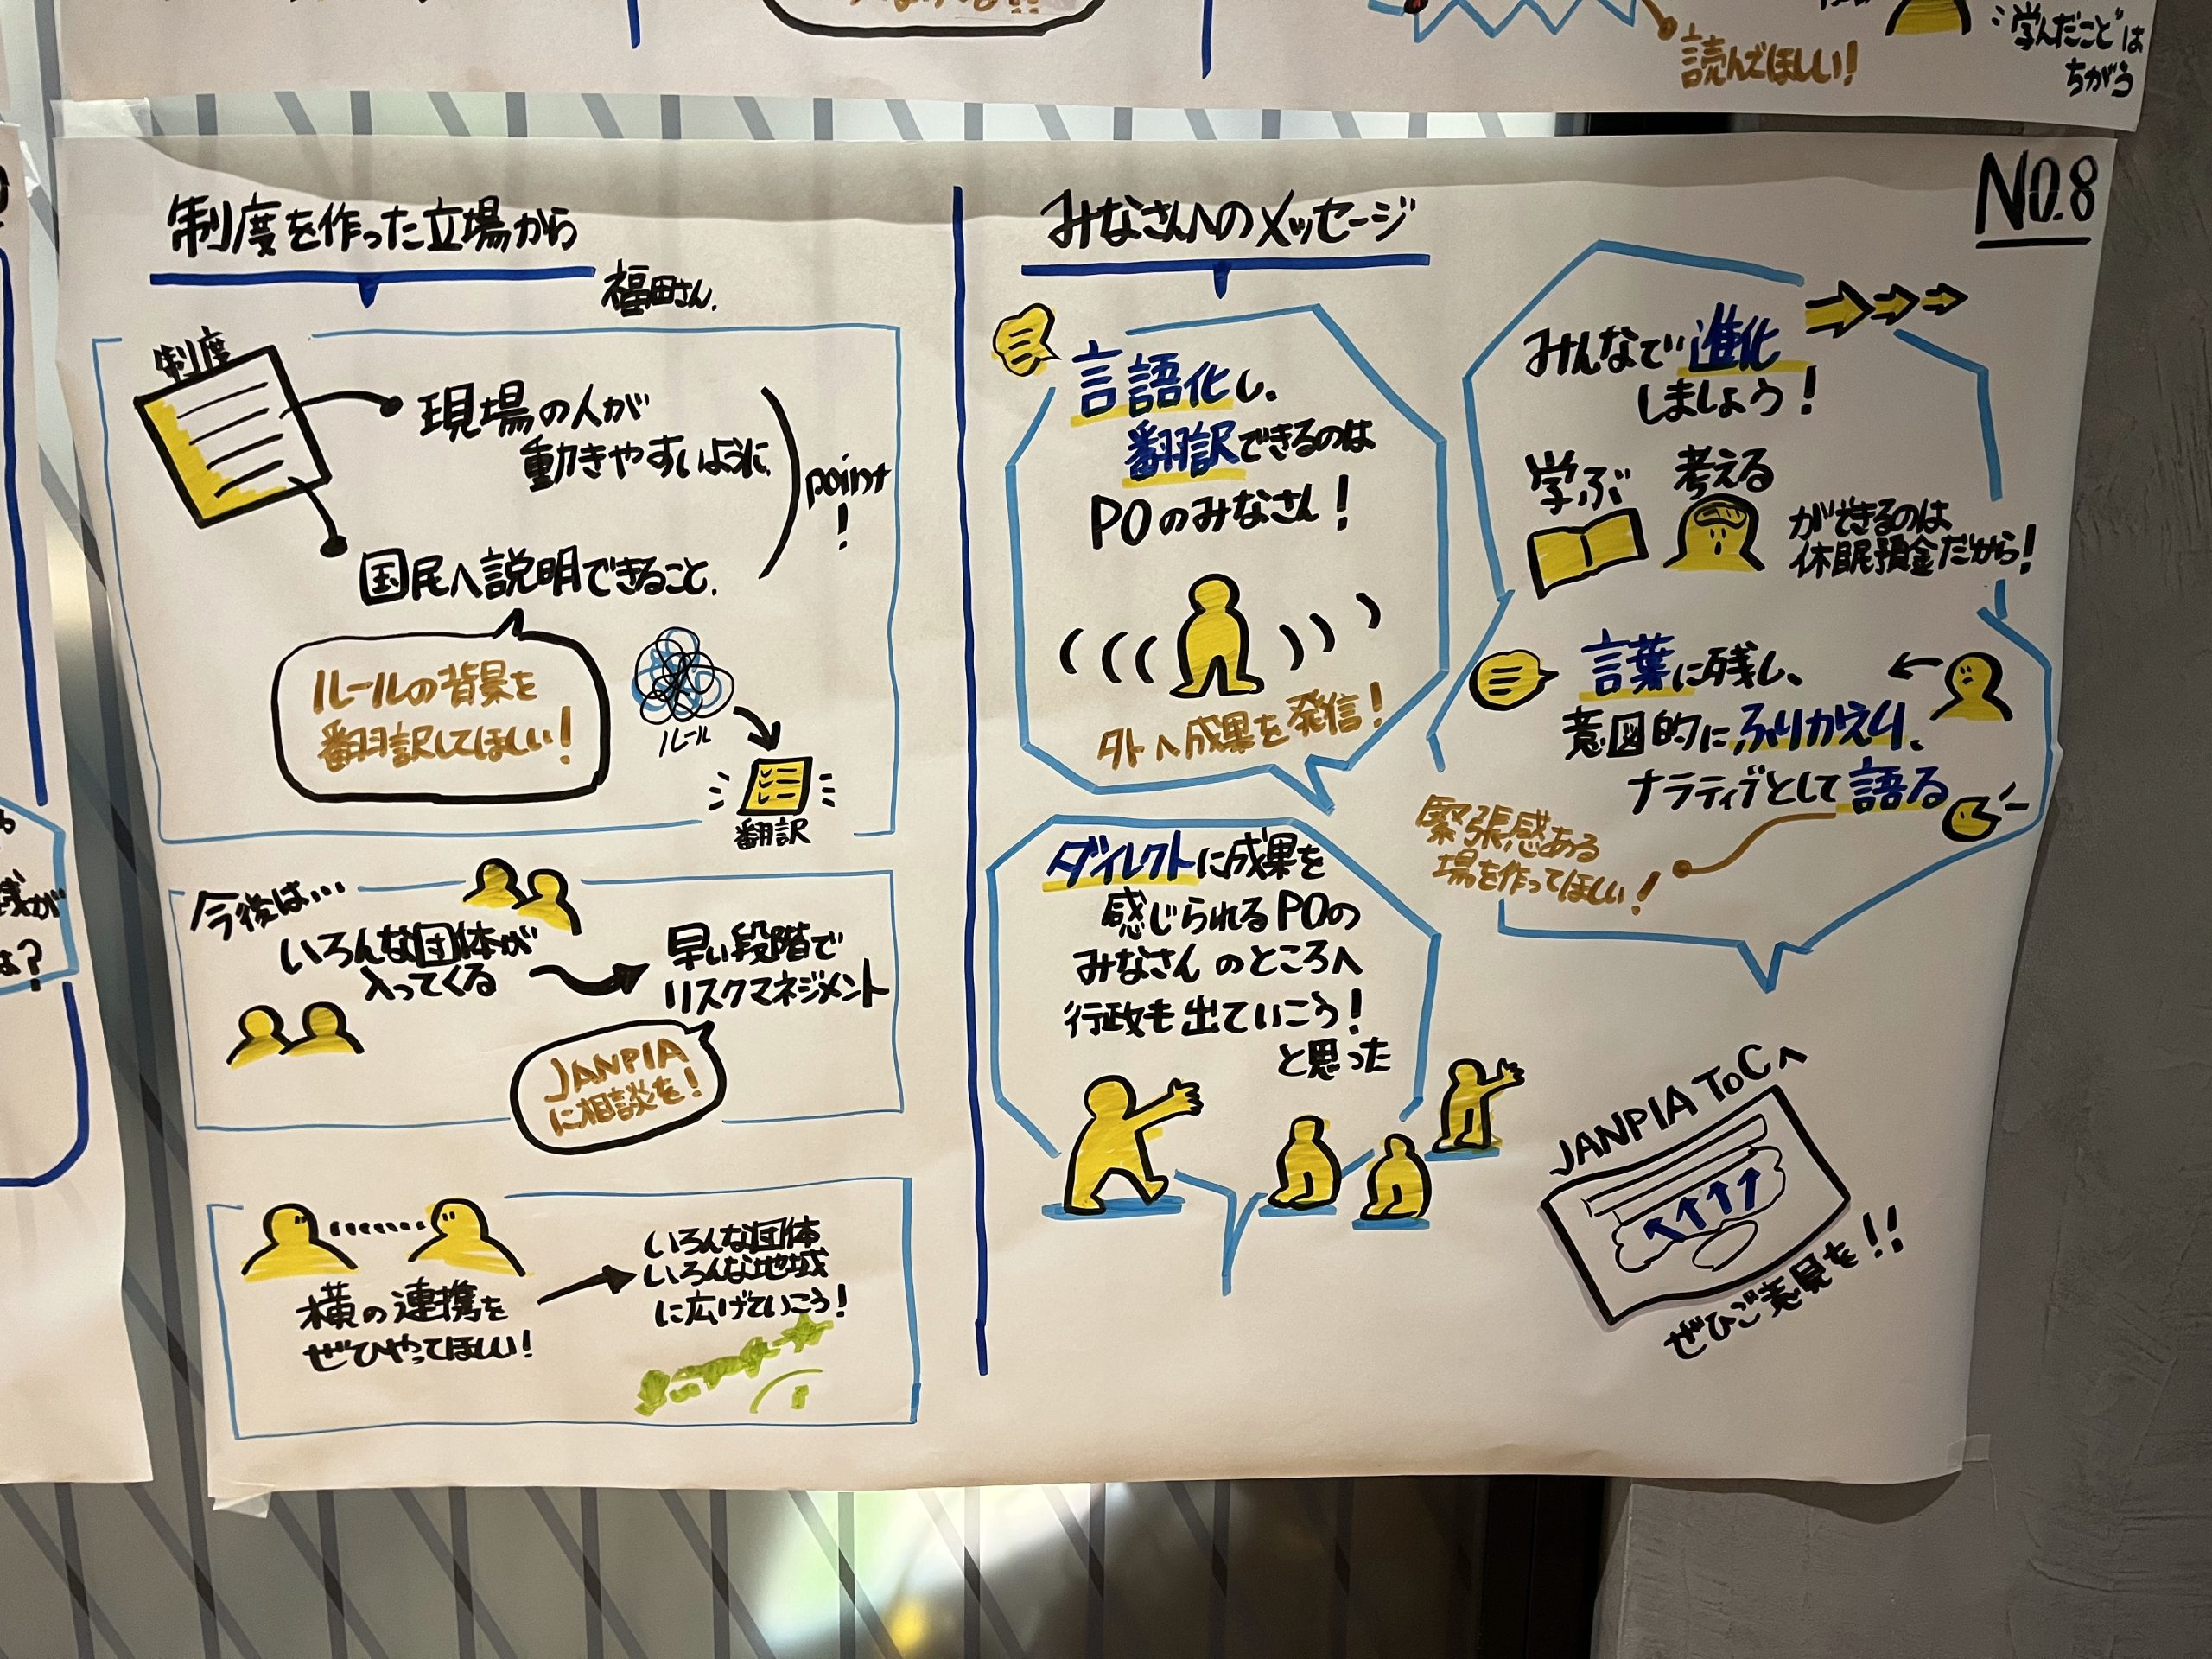 読んでほしい!
"学んだこと"は
ちがう
NO.8
制度を作った立場から
福田さん.
制度
現場の人が
動きやすいように、
国民へ説明できること.
point
!
ルールの背景を
翻訳してほしい!
ルール
翻訳
今後は…
いろんな団体が
入ってくる
早い段階で
リスクマネジメント
JANPIA
に相談を!
横の連携を
ぜひやってほしい!
いろんな団体
いろんな地域
に広げていこう!
みなさんへのメッセージ
言語化し、
翻訳できるのは
POのみなさん!
外へ成果を発信!
ダイレクトに成果を
感じられるPOの
みなさんのところへ
行政も出ていこう!
と思った
みんなで進化
しましょう!
学ぶ
考える
ができるのは
休眠預金だから!
言葉に残し、
意図的にふりかえり、
ナラティブとして語る
緊張感ある
場を作ってほしい!
JANPIA ToCへ
ぜひご意見を!!